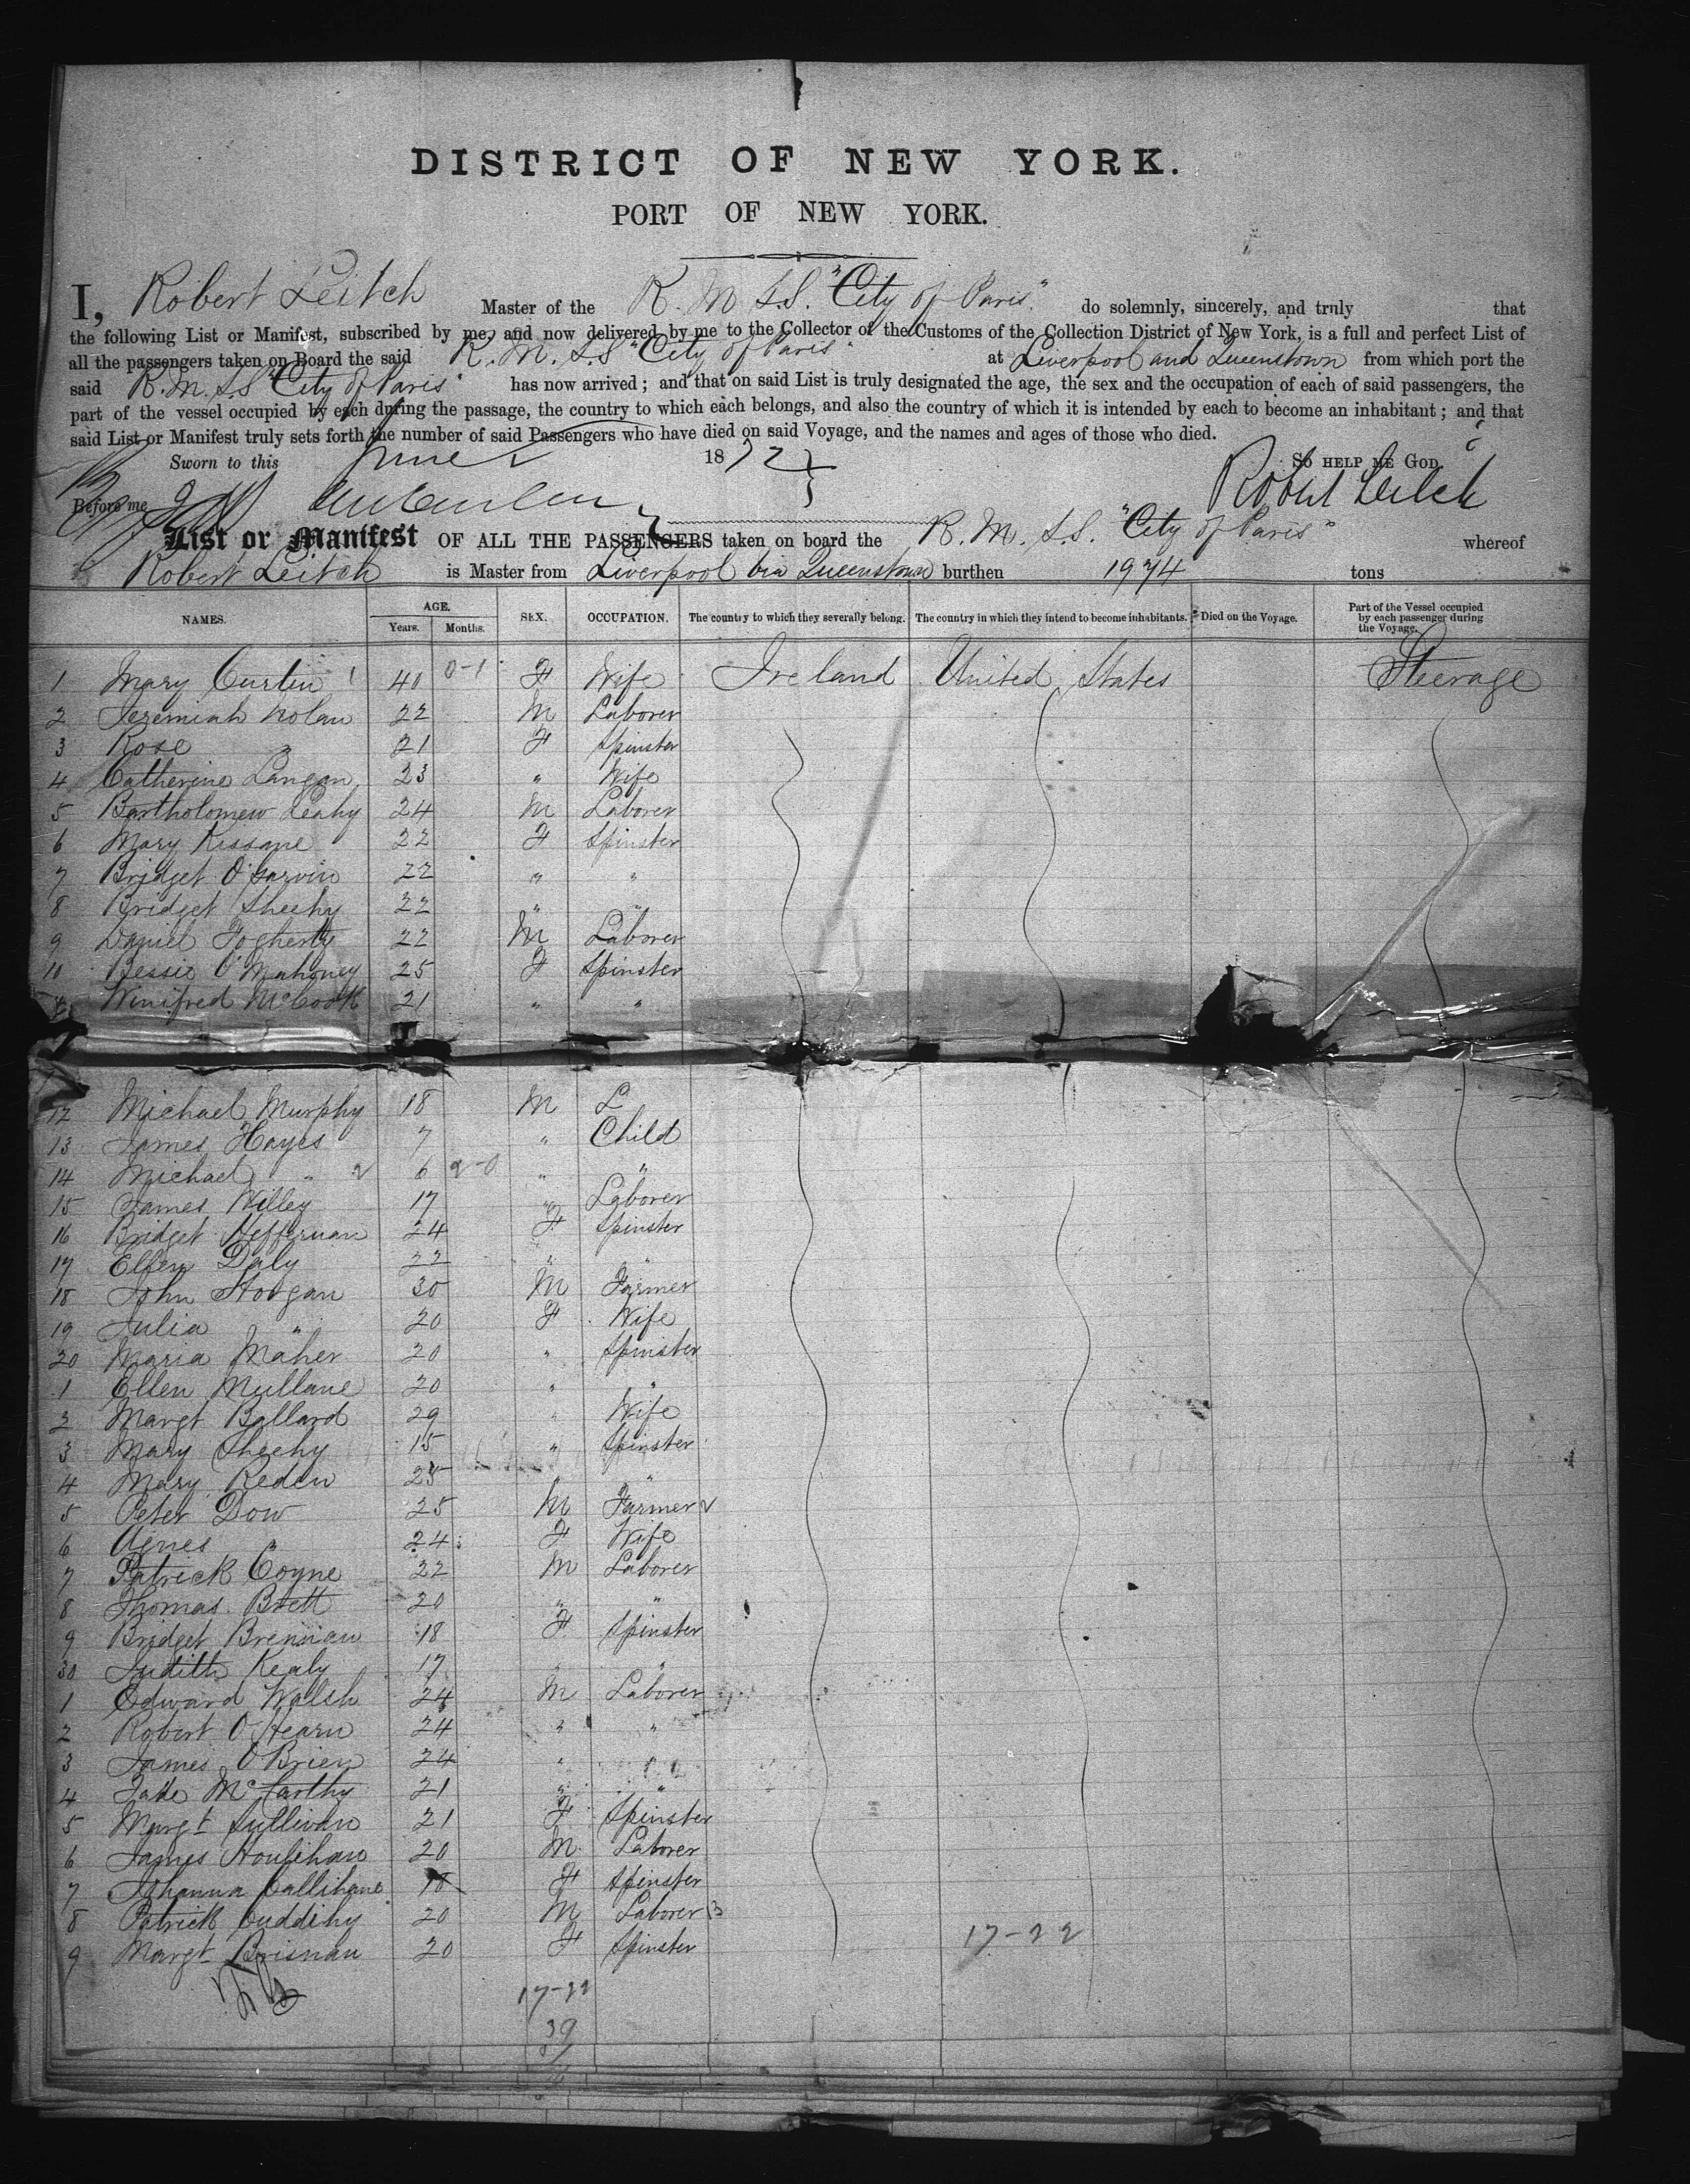 DISTRICT OF NEW YORK.
PORT OF NEW YORK.
I, Robert Leitch Master of the R. M S.S. "City of Paris" do solemnly, sincerely, and truly that
the following List or Manifest, subscribed by me, and now delivered by me to the Collector of the Customs of the Collection District of New York, is a full and perfect List of
all the passengers taken on Board the said R. M. S.S "City of Paris" at Liverpool and Queenstown from which port the
said R. M. S.S "City of Paris" has now arrived; and that on said List is truly designated the age, the sex and the occupation of each of said passengers, the
part of the vessel occupied by each during the passage, the country to which each belongs, and also the country of which it is intended by each to become an inhabitant; and that
said List or Manifest truly sets forth the number of said Passengers who have died on said Voyage, and the names and ages of those who died.
Sworn to this June 1872 So HELP ME GOD.
Before me Robert Leitch
List or Manifest OF ALL THE PASSENGERS taken on board the R. M. S.S. "City of Paris" whereof
Robert Leitch is Master from Liverpool via Queenstown burthen 1974 tons
NAMES. AGE. Years. Months. SEX. OCCUPATION. The country to which they severally belong. The country in which they intend to become inhabitants. Died on the Voyage. Part of the Vessel occupied by each passenger during the Voyage.
1 Mary Curtin 1 40 0-1 F Wife Ireland United States Steerage
2 Jeremiah Nolan 22 M Laborer
3 Rose " 21 F Spinster
4 Catherine Langan 23 " Wife
5 Bartholomew Leahy 24 M Laborer
6 Mary Kissane 22 F Spinster
7 Bridget O'Garvin 22 " "
8 Bridget Sheehy 22 " "
9 Daniel Fogherty 22 M Laborer
10 Bessie O'Mahoney 25 F Spinster
Winifred McCook 21 " "
12 Michael Murphy 18 M L
13 James Hayes 7 " Child
14 Michael " 2 6 2-0 " "
15 James Willey 17 " Laborer
16 Bridget Heffernan 24 F Spinster
17 Ellen Daly 22 " "
18 John Hoogan 30 M Farmer
19 Julia " 20 F Wife
20 Maria Maher 20 " Spinster
1 Ellen Mullane 20 " "
2 Margt Ballard 29 " Wife
3 Mary Sheehy 15 " Spinster
4 Mary Reden 25 " "
5 Peter Dow 25 M Farmer
6 Agnes " 24 F Wife
7 Patrick Coyne 22 M Laborer
8 Thomas Brett 20 " "
9 Bridget Brennan 18 F Spinster
30 Judith Kealy 17 " "
1 Edward Walsh 24 M Laborer
2 Robert O'Hearn 24 " "
3 James O'Brien 24 " "
4 McCarthy 21 " "
5 Margt Sullivan 21 F Spinster
6 James Houlihan 20 M Laborer
7 Johanna Callihane 18 F Spinster
8 Patrick Cuddihy 20 M Laborer 3
9 Margt Brisnan 20 F Spinster 17-22
17-22
39